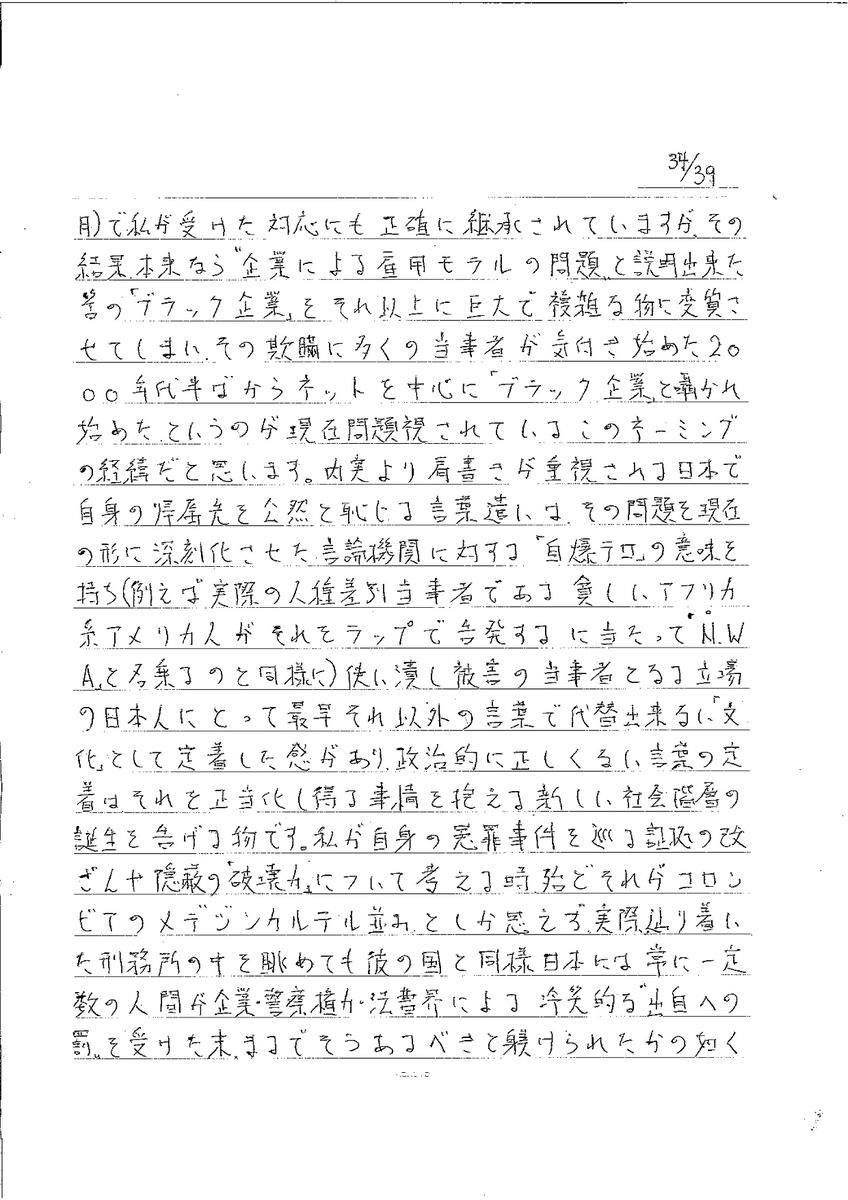 34/39
月)で私が受けた対応にも正確に継承されていますが、その
結果、本来なら"企業による雇用モラルの問題"と説明出来た
筈の「ブラック企業」をそれ以上に巨大で複雑な物に変質さ
せてしまい、その欺瞞に多くの当事者が気付き始めた20
00年代半ばからネットを中心に「ブラック企業」と囁かれ
始めた、というのが現在問題視されているこのネーミング
の経緯だと思います。内実より肩書きが重視される日本で
自身の帰属先を公然と恥じる言葉遣いは、その問題を現在
の形に深刻化させた言論機関に対する「自爆テロ」の意味を
持ち(例えば実際の人種差別当事者である貧しいアフリカ
系アメリカ人がそれをラップで告発するに当たって「N.W.
A」と名乗るのと同様に)使い潰し被害の当事者となる立場
の日本人にとって最早それ以外の言葉で代替出来ない「文
化」として定着した感があり、政治的に正しくない言葉の定
着はそれを正当化し得る事情を抱える新しい社会階層の
誕生を告げる物です。私が自身の冤罪事件を巡る証拠の改
ざんや隠蔽の「破壊力」について考える時、殆どそれがコロン
ビアのメデジンカルテル並み、としか思えず、実際辿り着い
た刑務所の中を眺めても彼の国と同様日本には常に一定
数の人間が企業・警察権力・法曹界による冷笑的な"出自への
罰"を受けた末、まるでそうあるべきと躾けられたかの如く